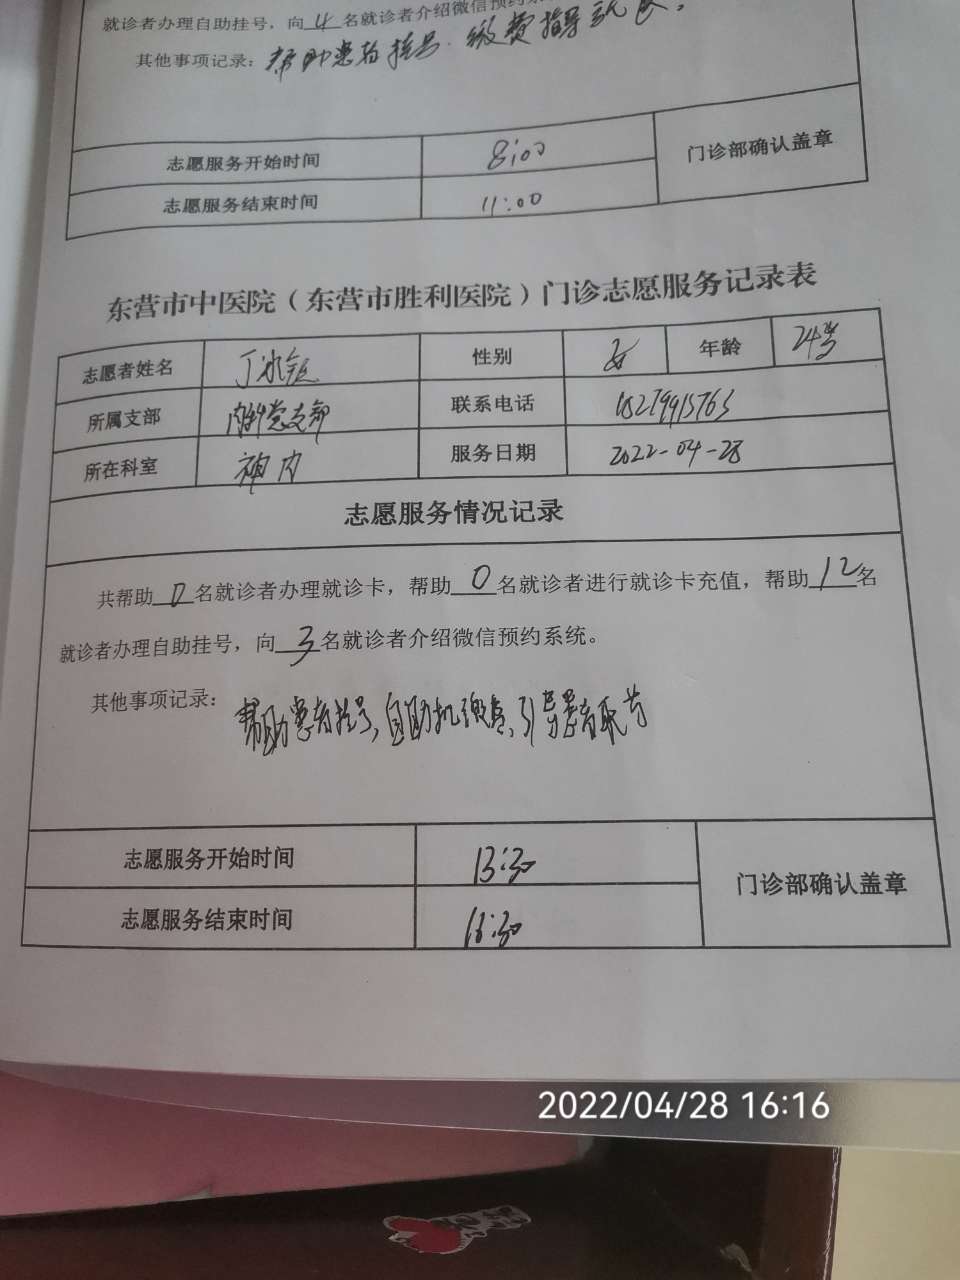 就诊者办理自助挂号，向 4 名就诊者介绍微信预约系
其他事项记录：帮助患者挂号.缴费指导就医.
志愿服务开始时间 8:00 门诊部确认盖章
志愿服务结束时间 11:00
东营市中医院（东营市胜利医院）门诊志愿服务记录表
志愿者姓名 丁冰 性别 女 年龄 24岁
所属支部 内科党支部 联系电话
所在科室 神内 服务日期 2022-04-28
志愿服务情况记录
共帮助 0 名就诊者办理就诊卡，帮助 0 名就诊者进行就诊卡充值，帮助 12 名
就诊者办理自助挂号，向 3 名就诊者介绍微信预约系统。
其他事项记录：帮助患者挂号，自助机缴费、引导患者取药
志愿服务开始时间 13:30 门诊部确认盖章
志愿服务结束时间 16:30
2022/04/28 16:16